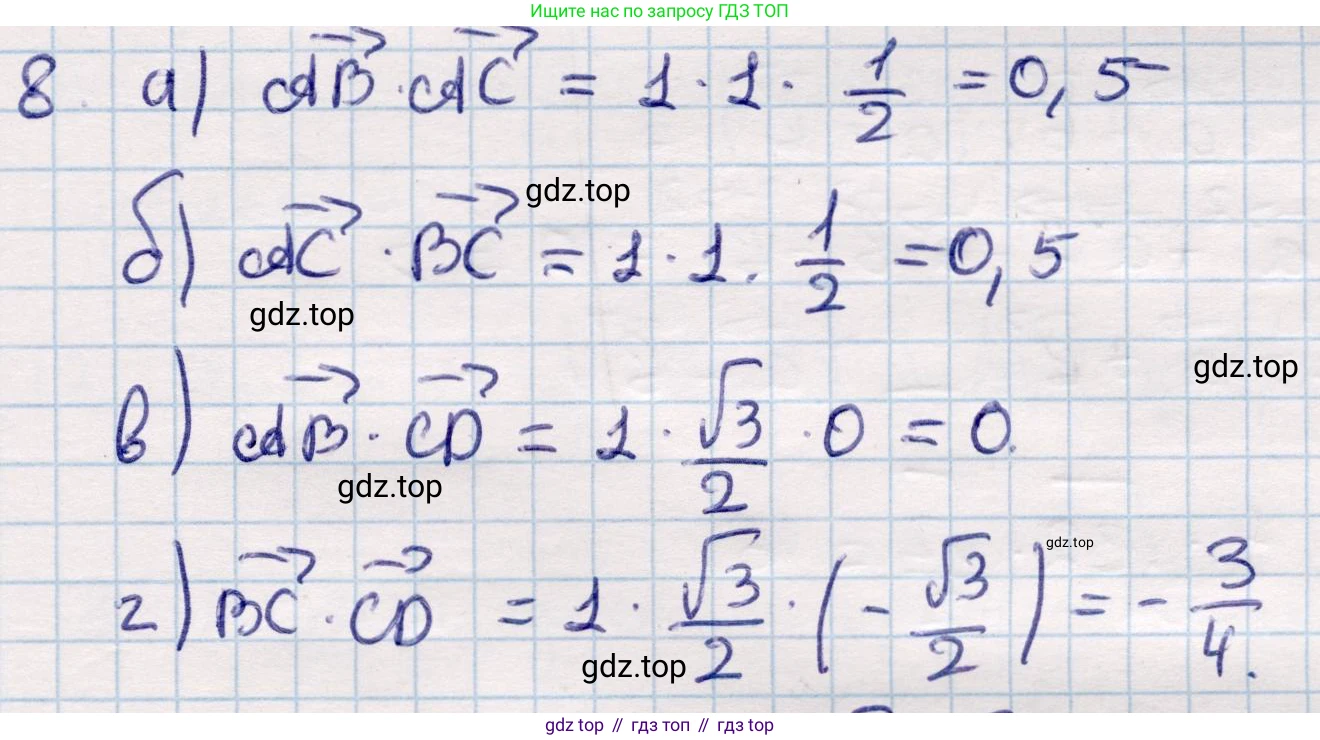 Ищите нас по запросу ГДЗ ТОП
8. а) $\overrightarrow{AB} \cdot \overrightarrow{AC} = 1 \cdot 1 \cdot \frac{1}{2} = 0,5$
gdz.top
б) $\overrightarrow{AC} \cdot \overrightarrow{BC} = 1 \cdot 1 \cdot \frac{1}{2} = 0,5$
gdz.top
gdz.top
в) $\overrightarrow{AB} \cdot \overrightarrow{CD} = 1 \cdot \frac{\sqrt{3}}{2} \cdot 0 = 0.$
gdz.top
gdz.top
г) $\overrightarrow{BC} \cdot \overrightarrow{CD} = 1 \cdot \frac{\sqrt{3}}{2} \cdot \left( -\frac{\sqrt{3}}{2} \right) = -\frac{3}{4}.$
gdz.top
gdz top // гдз топ // гдз top